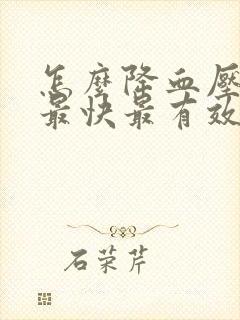 怎麼降血壓
最快最有效
石荣芹